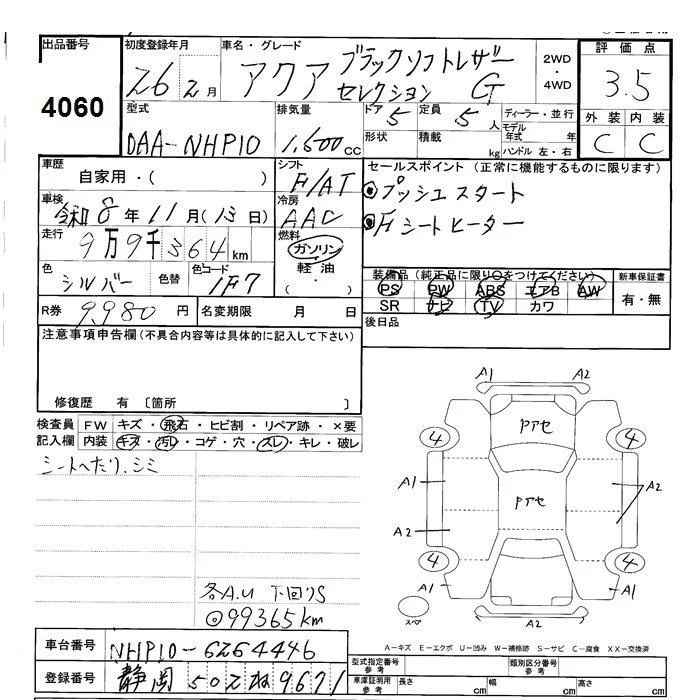 出品番号 4060
初度登録年月 26 2月
車名・グレード アクア ブラックソフトレザーセレクション G
2WD・4WD
評価点 3.5
外装 内装
C C
型式 DAA-NHP10
排気量 1,500cc
ドア 5
定員 5人
形状 積載 kg
ディーラー・並行
モデル年式 年
ハンドル 左・右
車歴 自家用・( )
シフト F/AT
セールスポイント (正常に機能するものに限ります)
プッシュスタート
Fシートヒーター
車検 令和8年11月(13日)
冷房 AAC
走行 9万9千364km
燃料 ガソリン 軽油・( ・ )
色 シルバー 色替 色コード 1F7
装備品(純正品に限り○をつけてください)
PS PW ABS エアB AW
SR ナビ TV カワ
新車保証書 有・無
R券 9,980円 名変期限 月 日
後日品
注意事項申告欄(不具合内容等は具体的に記入して下さい)
修復歴 有〔箇所 〕
検査員記入欄
FW キズ・飛石・ヒビ割・リペア跡・×要
内装 キズ・汚れ・コゲ・穴・スレ・キレ・破レ
シートへたり、シミ
各A.U 下回りS
◎99365km
A1 A2
Pアセ
4 4
Pアセ
A1 A2
A2
4 4
A1 A1
スペア
A2
A-キズ E-エクボ U-凹み W-補修跡 S-サビ C-腐食 XX-交換済
車台番号 NHP10-6264446
登録番号 静岡 502 9671
型式指定番号 参考 類別区分番号 参考
車庫証明用 参考 長さ cm 幅 cm 高さ cm